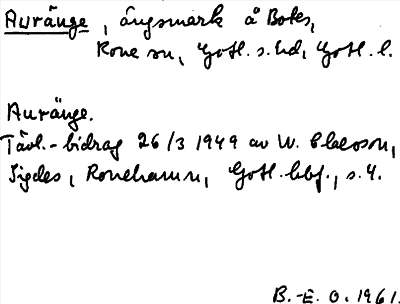 Auränge, ängsmark å Botes,
Rone sn, Gotl. s. hd, Gotl. l.
Auränge.
Tävl.-bidrag 26/3 1949 av W. Claeson,
Sigdes, Ronehamn, Gotl. hbf., s. 4.
B.-E. O. 1961.